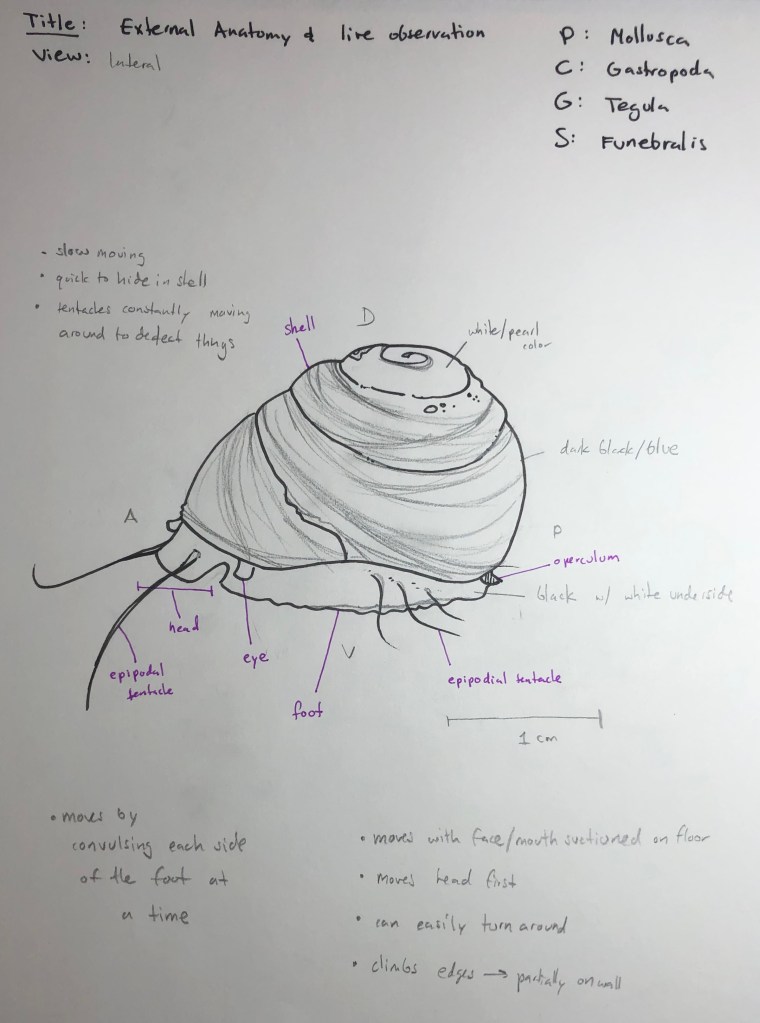 Title: External Anatomy & live observation
View: lateral
P: Mollusca
C: Gastropoda
G: Tegula
S: Funebralis
- slow moving
• quick to hide in shell
• tentacles constantly moving
around to detect things
shell
D
white/pearl
color
dark black/blue
A
P
operculum
black w/ white underside
head
eye
epipodal
tentacle
V
epipodial tentacle
foot
1 cm
• moves by
convulsing each side
of the foot at
a time
• moves with face/mouth suctioned on floor
• moves head first
• can easily turn around
• climbs edges → partially on wall